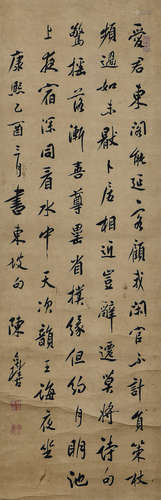 愛君東閣能延客顧我閒官不計員策杖
頻過如未厭卜居相近豈辭遷莫將詩句
驚搖落漸喜尊罍省撲緣但約月明池
上夜宿深同看水中天次韻王誨夜坐
康熙乙酉三月書東坡句 陳奕禧